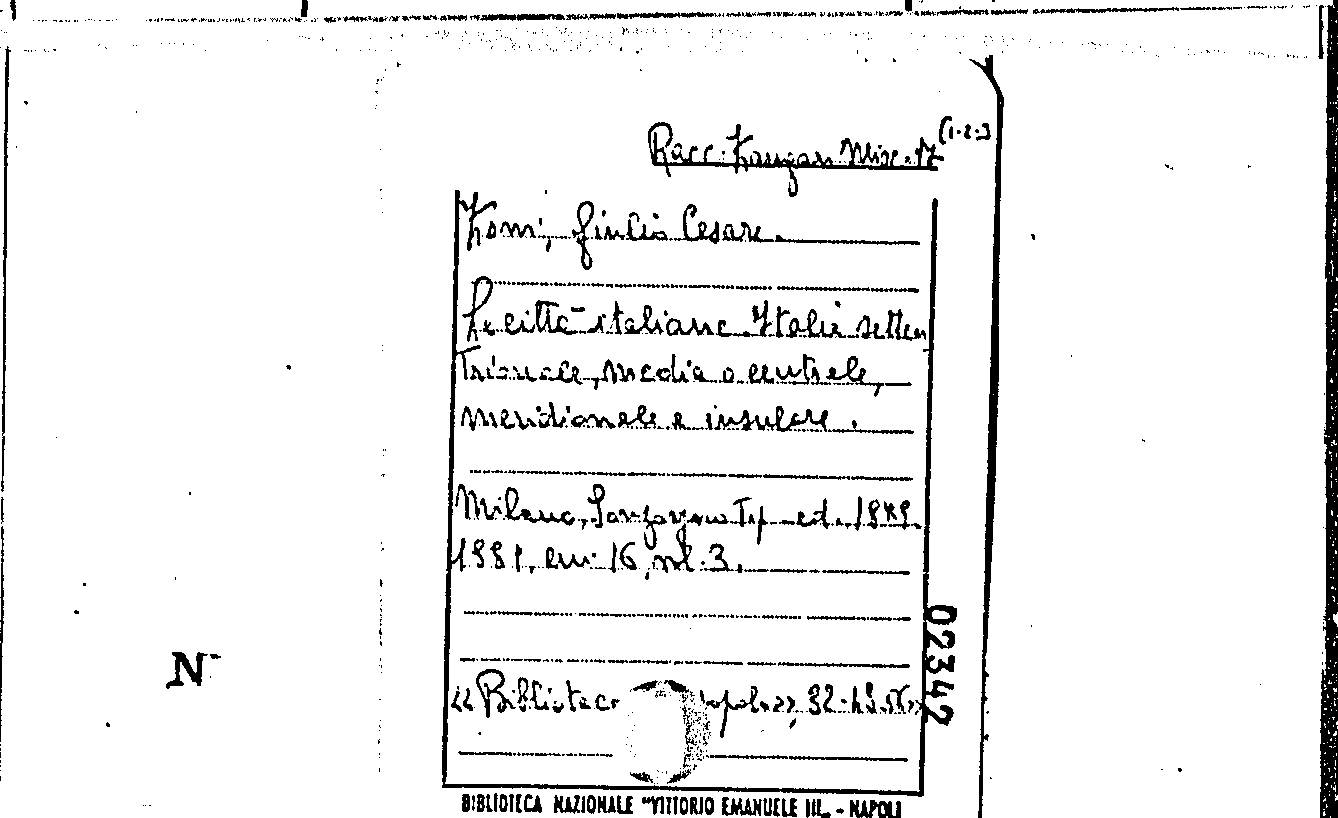 Racc. Misc. 17
(1-2-3
Giulio Cesare.
Le città italiane. Italia setten
trionale, media o centrale,
meridionale e insulare.
Milano, Sonzogno Tip-ed.
1881, in 16, vol. 3.
02342
N
«Biblioteca popol.», 32-49-56»
BIBLIOTECA NAZIONALE "VITTORIO EMANUELE III„ - NAPOLI